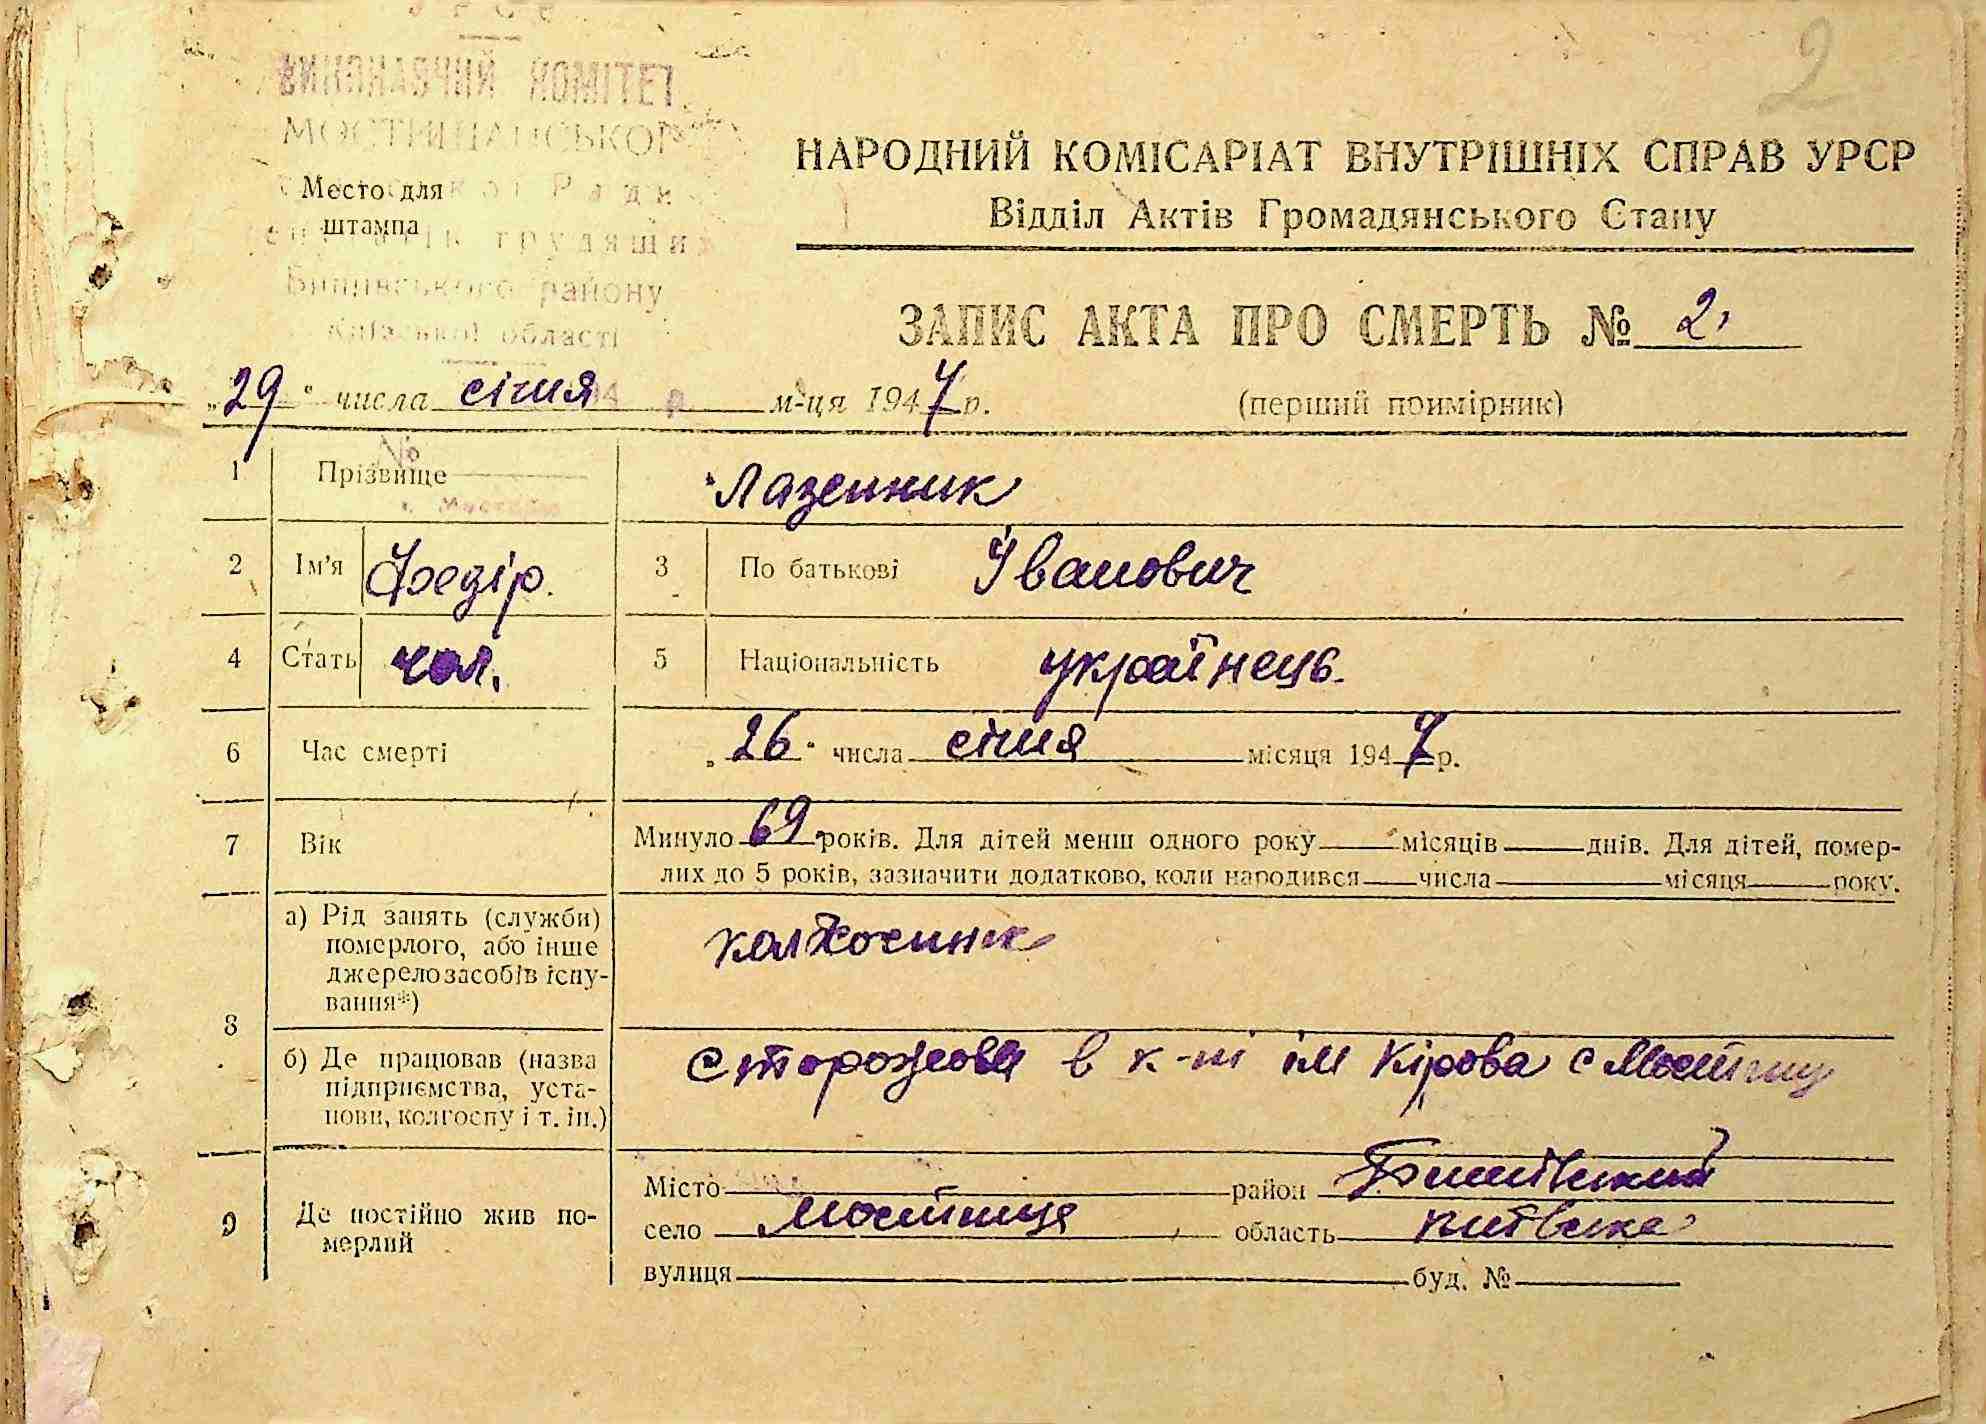 2
ВИКОНАВЧИЙ КОМІТЕТ
Место для
штампа
трудящих
району
Київської області
НАРОДНИЙ КОМІСАРІАТ ВНУТРІШНІХ СПРАВ УРСР
Відділ Актів Громадянського Стану
ЗАПИС АКТА ПРО СМЕРТЬ № 2.
„29" числа січня м-ця 1947 р. (перший примірник)
1 Прізвище Лазенник
2 Ім'я Федір. 3 По батькові Іванович
4 Стать чол. 5 Національність українець.
6 Час смерті „26" числа січня місяця 1947 р.
7 Вік Минуло 69 років. Для дітей менш одного року місяців днів. Для дітей, помер-
лих до 5 років, зазначити додатково, коли народився числа місяця року.
8 а) Рід занять (служби)
померлого, або інше
джерело засобів існу-
вання*)
колхосник
б) Де працював (назва
підприємства, уста-
нови, колгоспу і т. ін.)
сторожова в к-пі ім Кірова с Мостищ
9 Де постійно жив по-
мерлий
Місто район
село область
вулиця буд. №